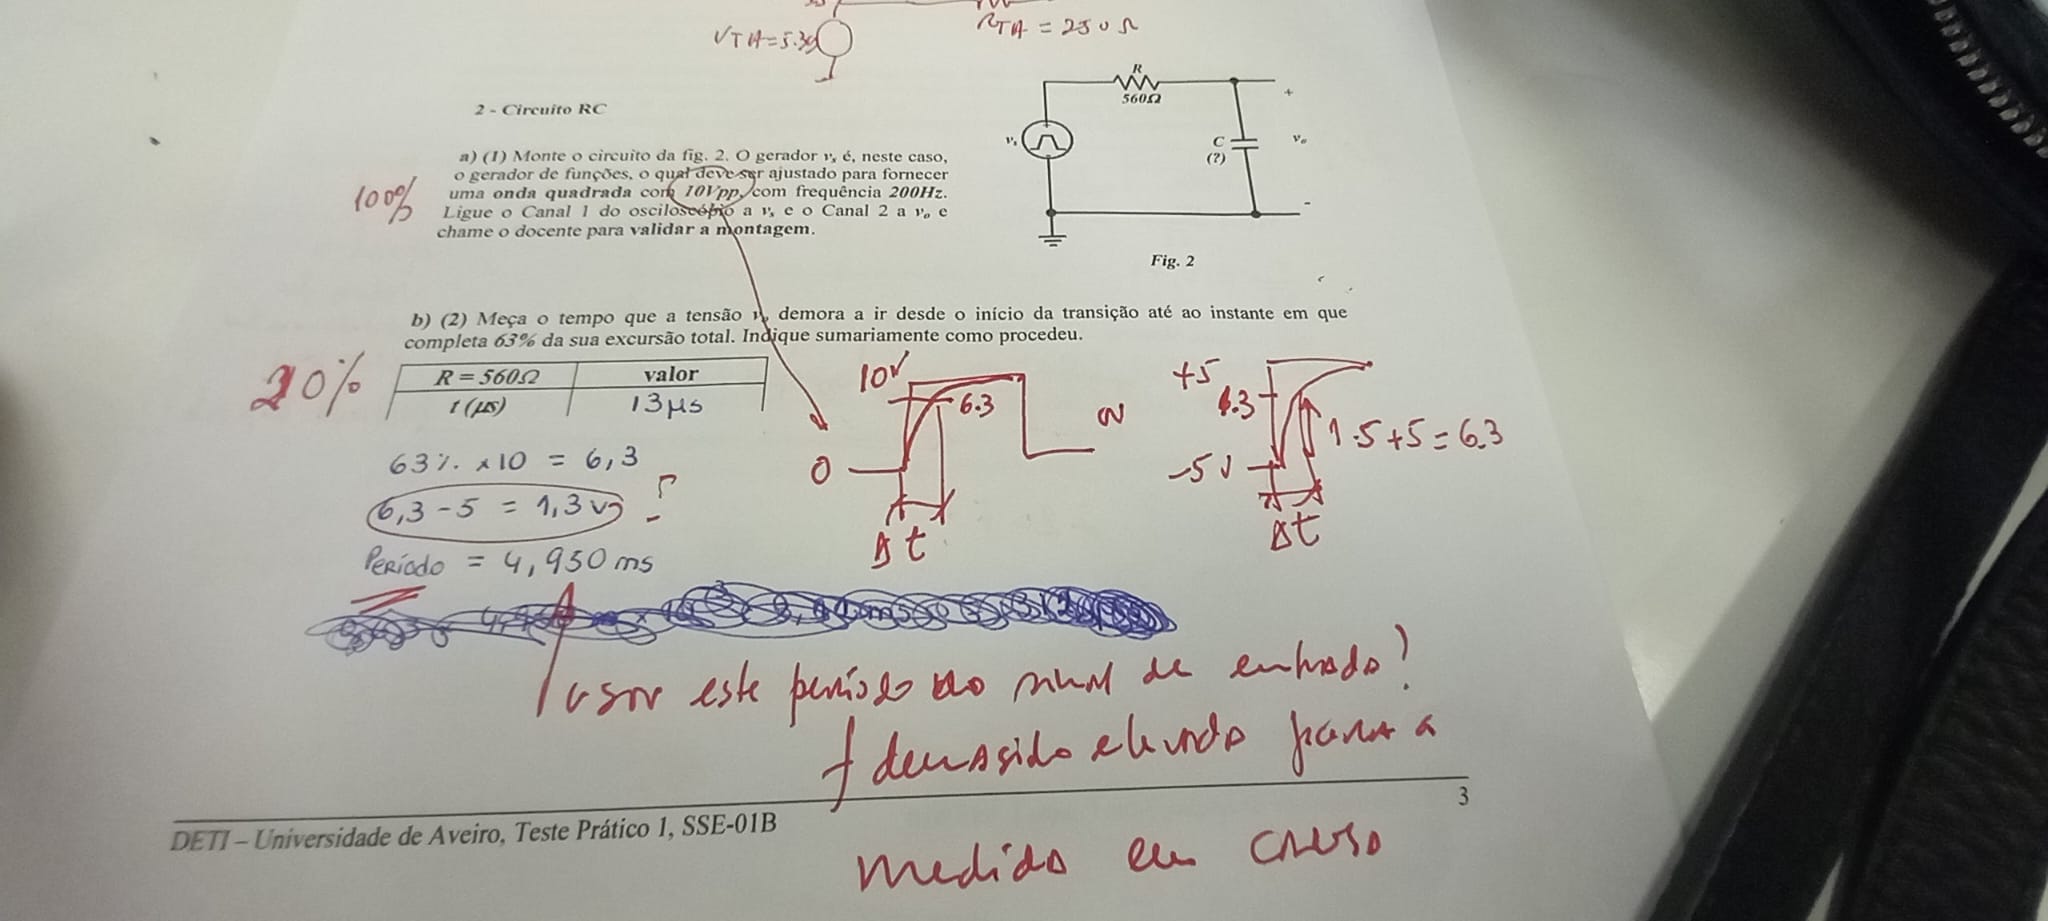 VTH=5.39
RTH = 250 Ω
2 - Circuito RC
a) (1) Monte o circuito da fig. 2. O gerador vs é, neste caso,
o gerador de funções, o qual deve ser ajustado para fornecer
uma onda quadrada com 10Vpp, com frequência 200Hz.
Ligue o Canal 1 do osciloscópio a vs e o Canal 2 a vo e
chame o docente para validar a montagem.
100%
R
560Ω
vs
C
(?)
+
vo
-
Fig. 2
b) (2) Meça o tempo que a tensão vo demora a ir desde o início da transição até ao instante em que
completa 63% da sua excursão total. Indique sumariamente como procedeu.
20%
R = 560Ω valor
t (µs) 13µs
63% × 10 = 6,3
6,3 - 5 = 1,3 V ?
Período = 4,950 ms
10V
6.3
0
Δt
+5
6.3
-5V
1.5+5=6.3
Δt
usar este período do sinal de entrada?
f demasiado elevado para a
medida em causa
3
DETI – Universidade de Aveiro, Teste Prático 1, SSE-01B